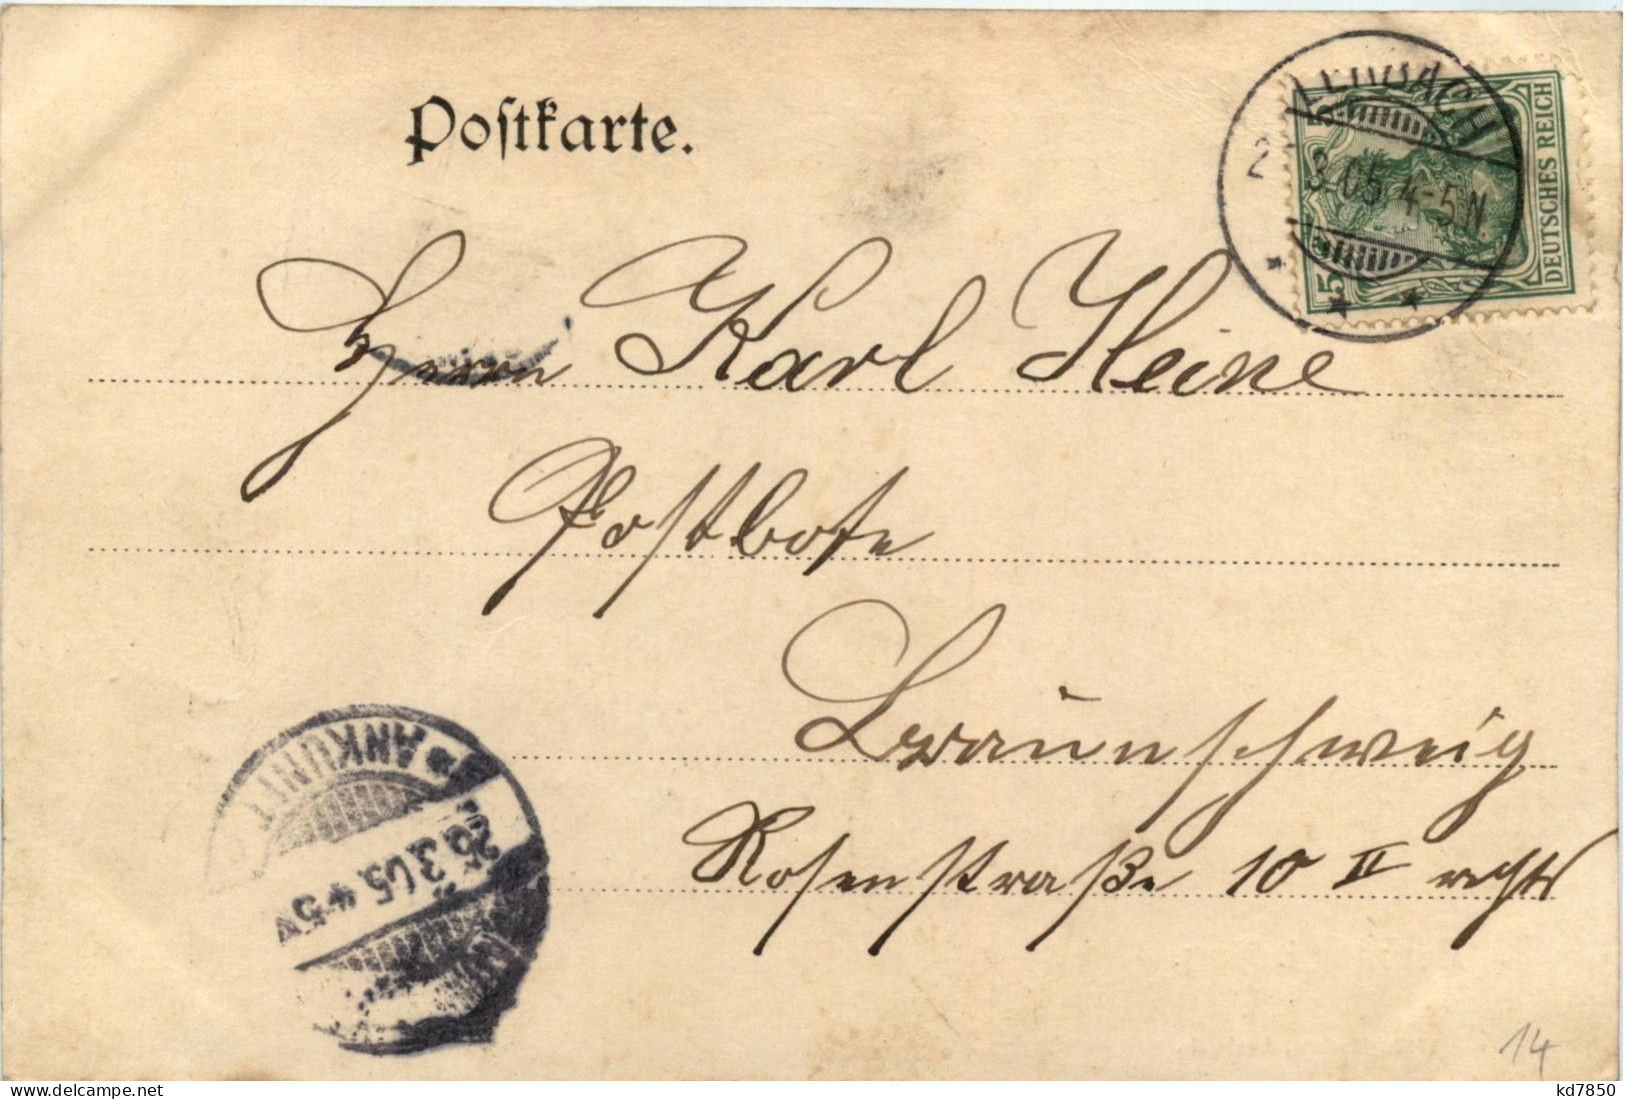 Postkarte.
LERBACH
3.05 4-5N.
DEUTSCHES REICH
5
Herrn Karl Heine
Postbote
Braunschweig
Rosenstraße 10 II rechts
ANKUNFT
26.3.05.4-5N
14
kd7850